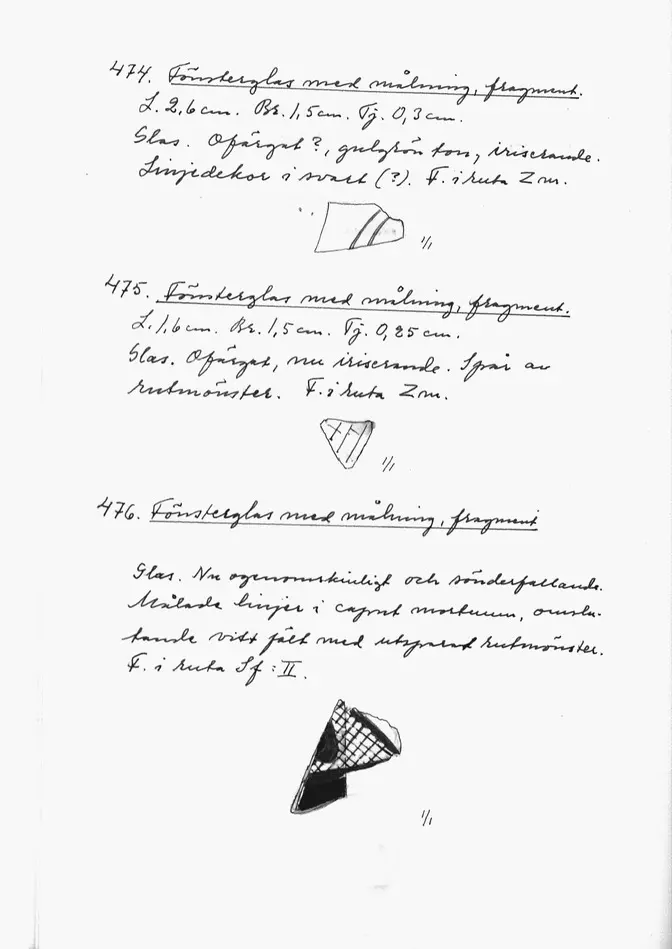 474. Fönsterglas med målning, fragment.
L. 2,6 cm. Br. 1,5 cm. Tj. 0,3 cm.
Glas. Ofärgat ?, gulgrön ton, iriserande.
Linjedekor i svart (?). F. i ruta Z m.
1/1
475. Fönsterglas med målning, fragment.
L. 1,6 cm. Br. 1,5 cm. Tj. 0,25 cm.
Glas. Ofärgat, nu iriserande. Spår av
rutmönster. F. i ruta Z m.
1/1
476. Fönsterglas med målning, fragment
Glas. Nu ogenomskinligt och sönderfallande.
Målade linjer i caput mortuum, omslu-
tande vitt fält med utsparad rutmönster.
F. i ruta Sf : II.
1/1